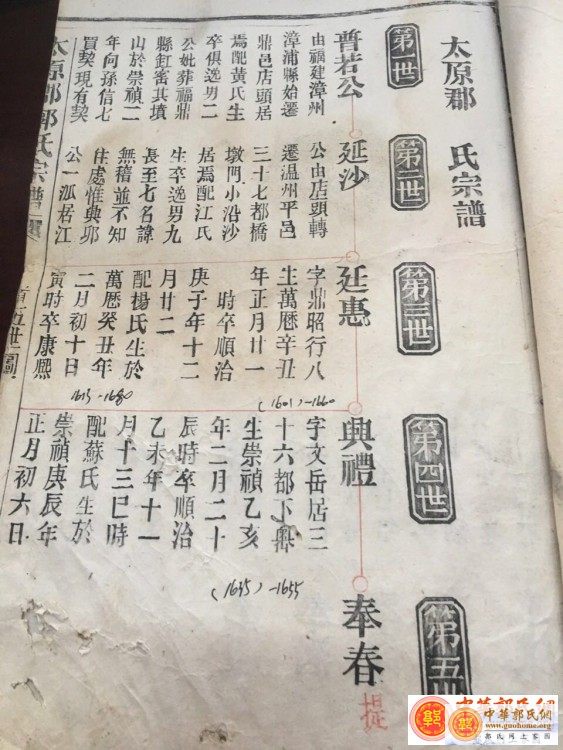 太原郡 氏宗譜
第一世
普若公
由福建漳州
漳浦縣始遷
鼎邑店頭居
焉配黃氏生
卒俱逸男二
公妣葬福鼎
縣釭窰其墳
山於崇禎二
年向孫信七
買契現有契
第二世
延沙
公由店頭轉
遷溫州平邑
三十七都橋
墩門小沿沙
居焉配江氏
生卒逸男九
長至七名諱
無稽並不知
住處惟典夘
公一派居江
第三世
廷惠
字鼎昭行八
生萬曆辛丑
年正月廿一
時卒順治
庚子年十二
月廿二
配楊氏生於
萬曆癸丑年
二月初十日
寅時卒康熙
(1601)-1660
1613-1680
第四世
興禮
字文岳居三
十六都下
生崇禎乙亥
年二月二十
辰時卒順治
乙未年十一
月十三巳時
配蘇氏生於
崇禎庚辰年
正月初六日
(1635)-1655
第五世
奉春
提
太原郡郭氏宗譜
首五世圖
中華郭氏網
中華郭氏網
www.guohome.org
郭氏網上家園